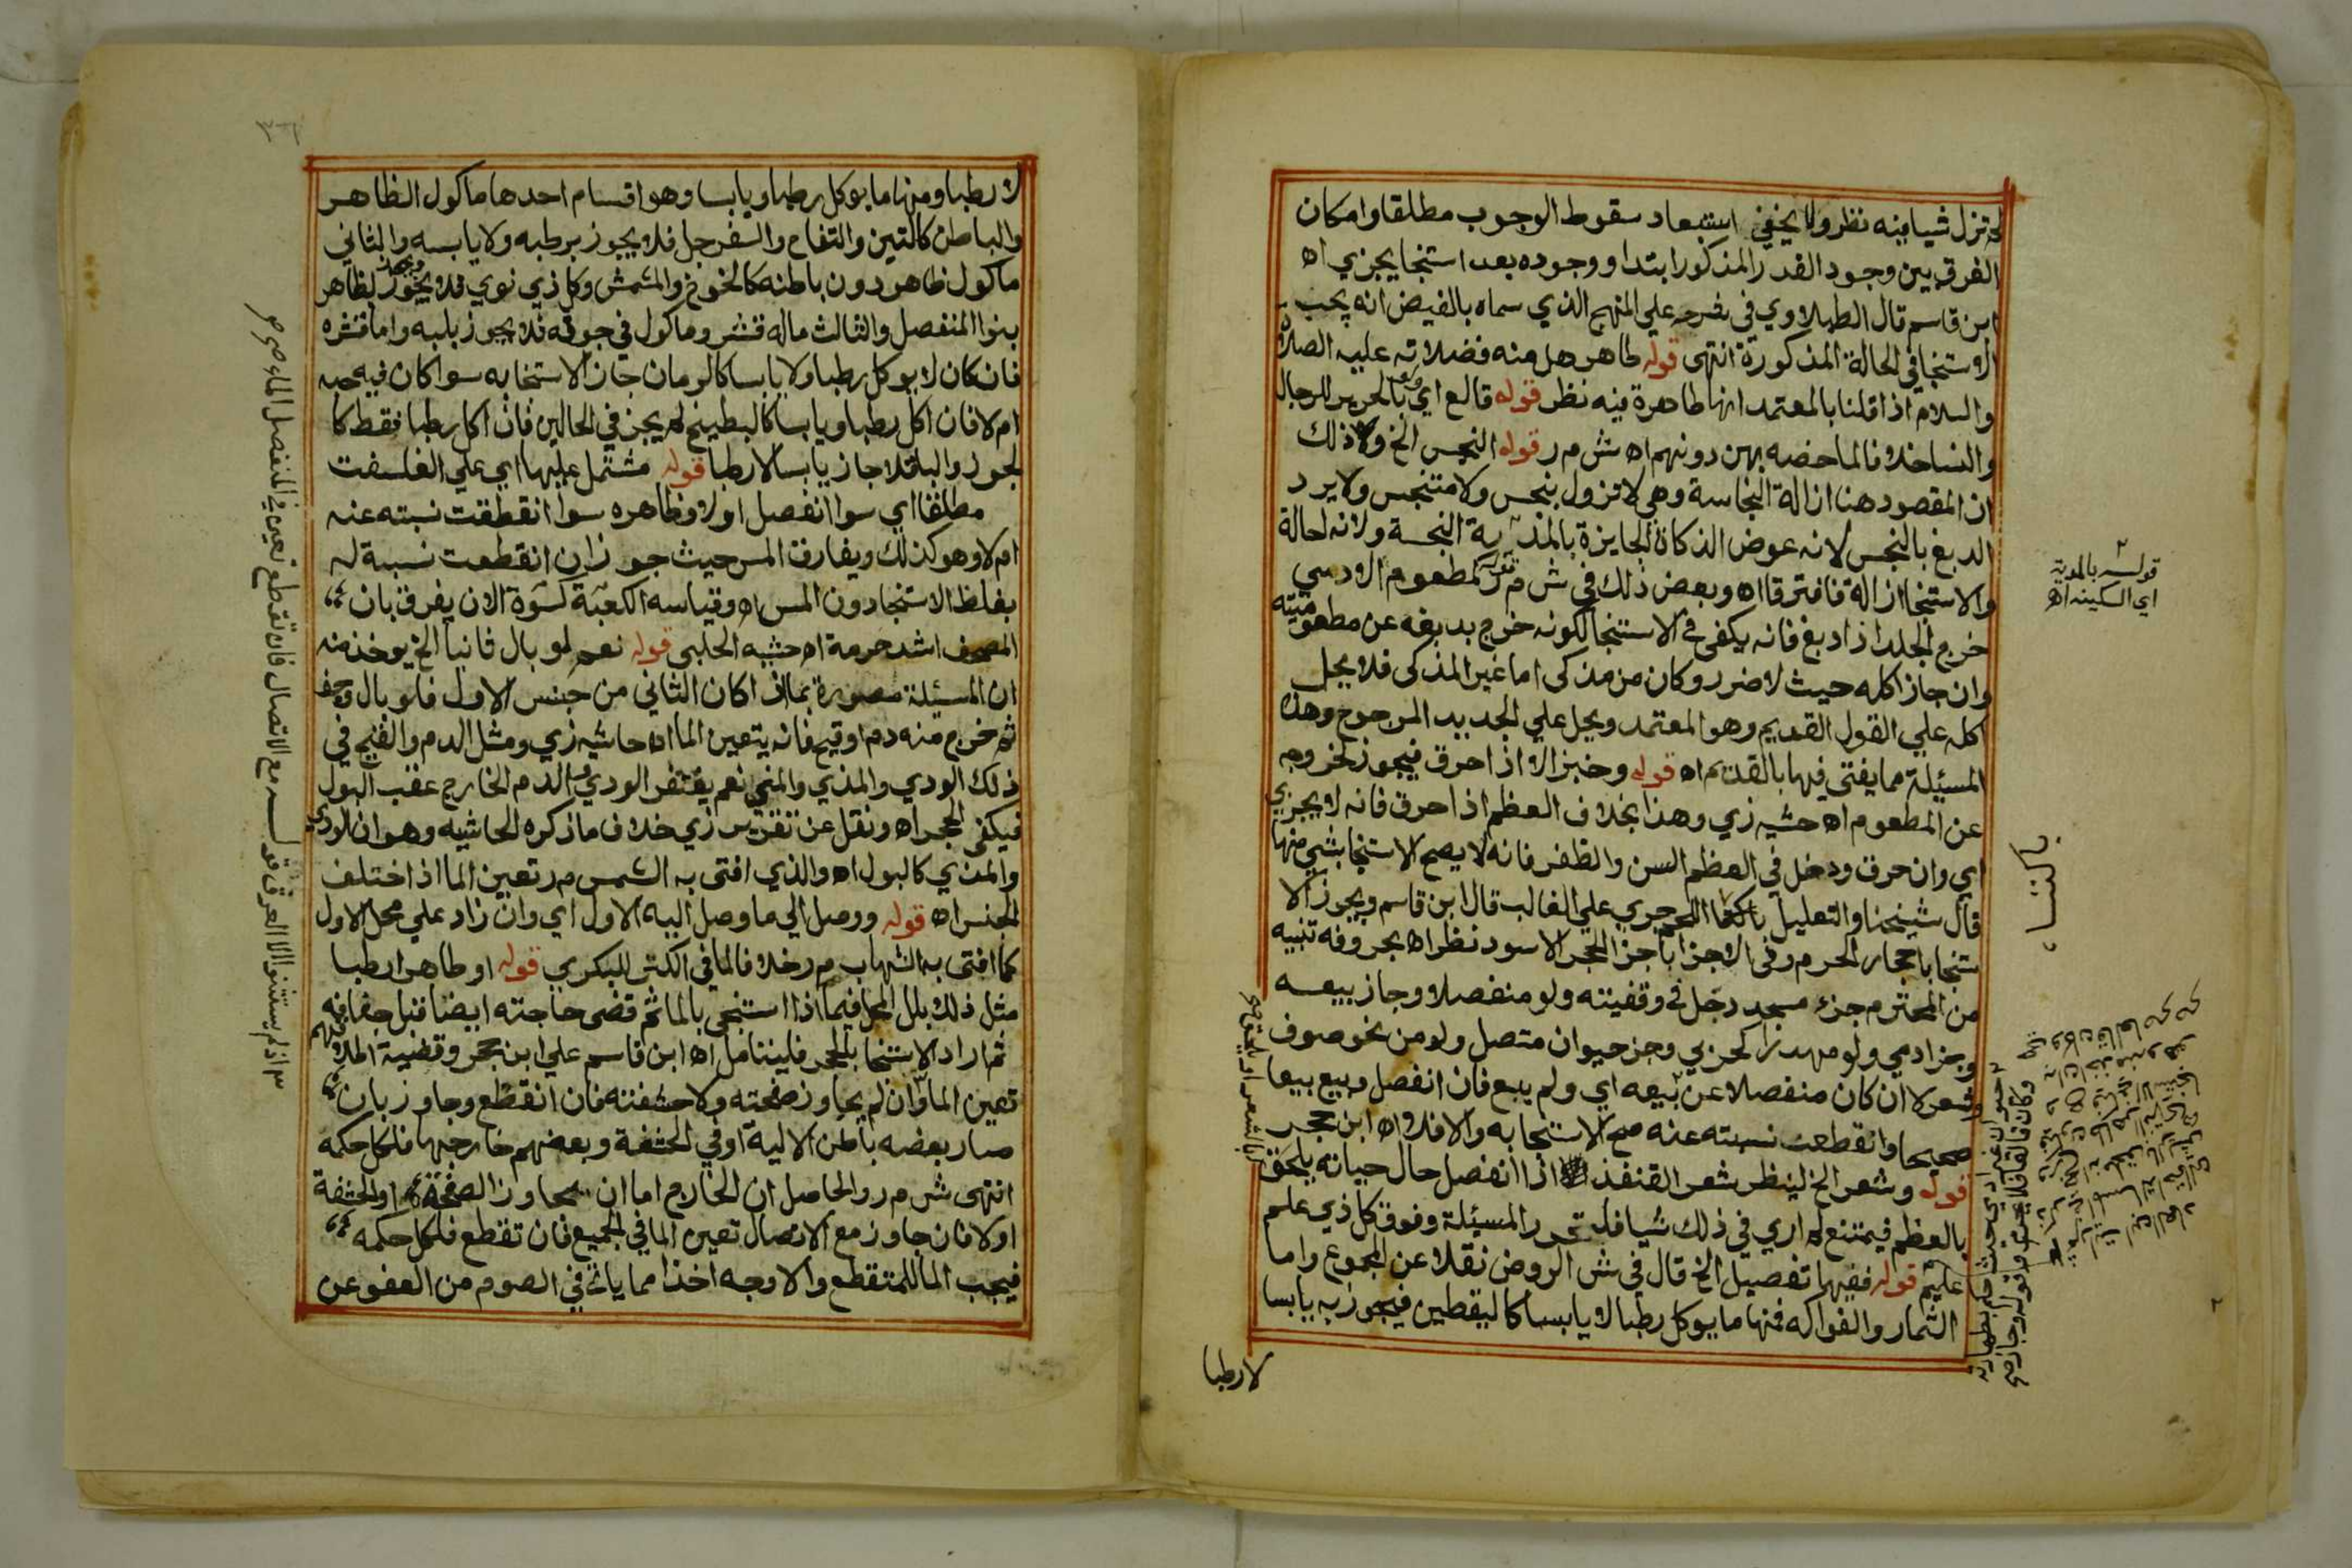 لم تزل شيا فيه نظر ولا يخفي استبعاد سقوط الوجوب مطلقا وامكان
الفرق بين وجود القدر المذكور ابتدا ووجوده بعد استنجا يجزي اه
ابن قاسم قال الطبلاوي في شرحه علي المنهج الذي سماه بالفيض انه يجب
الاستنجا في الحالة المذكورة انتهى قوله طاهر هل منه فضلاته عليه الصلاة
والسلام اذا قلنا بالمعتمد انها طاهرة فيه نظر قوله قالع اي ولو بالحرير للرجال
والنسا خلافا لما خصه بهن دونهم اه ش م ر قوله النجس الخ ولان ذلك
ان المقصود هنا ازالة النجاسة وهي لا تزول بنجس ولا متنجس ولا يرد
الدبغ بالنجس لانه عوض الذكاة الجايزة بالمدية النجسة ولانه احالة
والاستنجا ازالة فافترقا اه وبعض ذلك في ش م ر قوله كمطعوم الادمي
خرج الجلد اذا دبغ فانه يكفي في الاستنجا لكونه خرج بدبغه عن مطعوميته
وان جاز اكله حيث لا ضرر وكان من مذكى اما غير المذكى فلا يحل
اكله علي القول القديم وهو المعتمد ويحل علي الجديد المرجوح وهذه
المسئلة مما يفتى فيها بالقديم اه قوله وخبز الا اذا احرق فيجوز لخروجه
عن المطعوم اه حشيه زي وهذا بخلاف العظم اذا احرق فانه لا يجزي
اي وان حرق ودخل في العظم السن والظفر فانه لا يصح الاستنجا بشي منها
قال شيخنا والتعليل جري علي الغالب قال ابن قاسم ويجوز الا
ستنجا باحجار الحرم وفي الاجزا باجزا الحجر الاسود نظر اه بحروفه تنبيه
من المحترم جزء مسجد دخل في وقفيته ولو منفصلا وجاز بيعه
وجز ادمي ولو مهدرا كحربي وجز حيوان متصل ولو من نحو صوف
وشعر لا ان كان منفصلا عن بيعه اي ولم يبع فان انفصل وبيع بيعا
صحيحا وانقطعت نسبته عنه صح الاستنجا به والا فلا اه ابن حجر
قوله وشعر الخ لينظر شعر القنفذ اذا انفصل حال حياته يلحق
بالعظم فيمتنع لم اري في ذلك شيا فلتحرر المسئلة وفوق كل ذي علم
عليم قوله ففيها تفصيل الخ قال في ش الروض نقلا عن المجموع واما
الثمار والفواكه فمنها ما يوكل رطبا لا يابسا كاليقطين فيجوز به يابسا
لا رطبا
قوله بالمدية
اي السكينه اه
لا رطبا ومنها ما يوكل رطبا ويابسا وهو اقسام احدها ماكول الظاهر
والباطن كالتين والتفاح والسفرجل فلا يجوز برطبه ولا يابسه والثاني
ماكول ظاهره دون باطنه كالخوخ والمشمش وكل ذي نوي فلا يجوز بظاهره
بنواه المنفصل والثالث ماله قشر وماكول في جوفه فلا يجوز بلبه واما قشره
فان كان لا يوكل رطبا ولا يابسا كالرمان جاز الاستنجا به سوا كان فيه حبه
ام لا فان اكل رطبا ويابسا كالبطيخ لم يجز في الحالين فان اكل رطبا فقط كا
لجوز والباقلا جاز يابسا لا رطبا قوله مشتمل عليها اي علي الفلسفت
مطلقا اي سوا انفصل اولا وظاهره سوا انقطقت نسبته عنه
ام لا وهو كذلك ويفارق المس حيث جوز ان انقطعت نسبة له
بغلظ الاستنجا دون المس اه وقياسه الكعبة كسوة الان يفرق بان
المصحف اشد حرمة اه حشيه الحلبي قوله نعم لو بال ثانيا الخ يوخذ منه
ان المسئلة مصورة بما اذا كان الثاني من جنس الاول فلو بال وجف
ثم خرج منه دم او قيح فانه يتعين الما اه حاشيه زي ومثل الدم والقيح في
ذلك الودي والمذي والمني نعم يغتفر الودي والدم الخارج عقب البول
فيكفى الحجر اه ونقل عن تقرير زي خلاف ما ذكره الحاشيه وهو ان الودي
والمذي كالبول اه والذي افتى به الشمس م ر تعين الما اذا اختلف
الجنس اه قوله ووصل الي ما وصل اليه الاول اي وان زاد علي محل الاول
كما افتى به الشهاب م ر خلافا لما في الكنز للبكري قوله او طاهر رطبا
مثل ذلك بلل المحل فيما اذا استنجى بالما ثم قضى حاجته ايضا قبل جفافه
ثم اراد الاستنجا بالحجر فليتامل اه ابن قاسم علي ابن حجر وقضية اطلاقهم
تعين الما وان لم يجاوز صفحته ولا حشفته فان انقطع وجاوز بان
صار بعضه باطن الالية او في الحشفة وبعضهم خارجها فلكل حكمه
انتهى ش م ر والحاصل ان الخارج اما ان يجاوز الصفحة او الحشفة
اولا فان جاوز مع الاتصال تعين الما في الجميع فان تقطع فلكل حكمه
فيجب الما للمتقطع والاوجه اخذا مما ياتي في الصوم من العفو عن